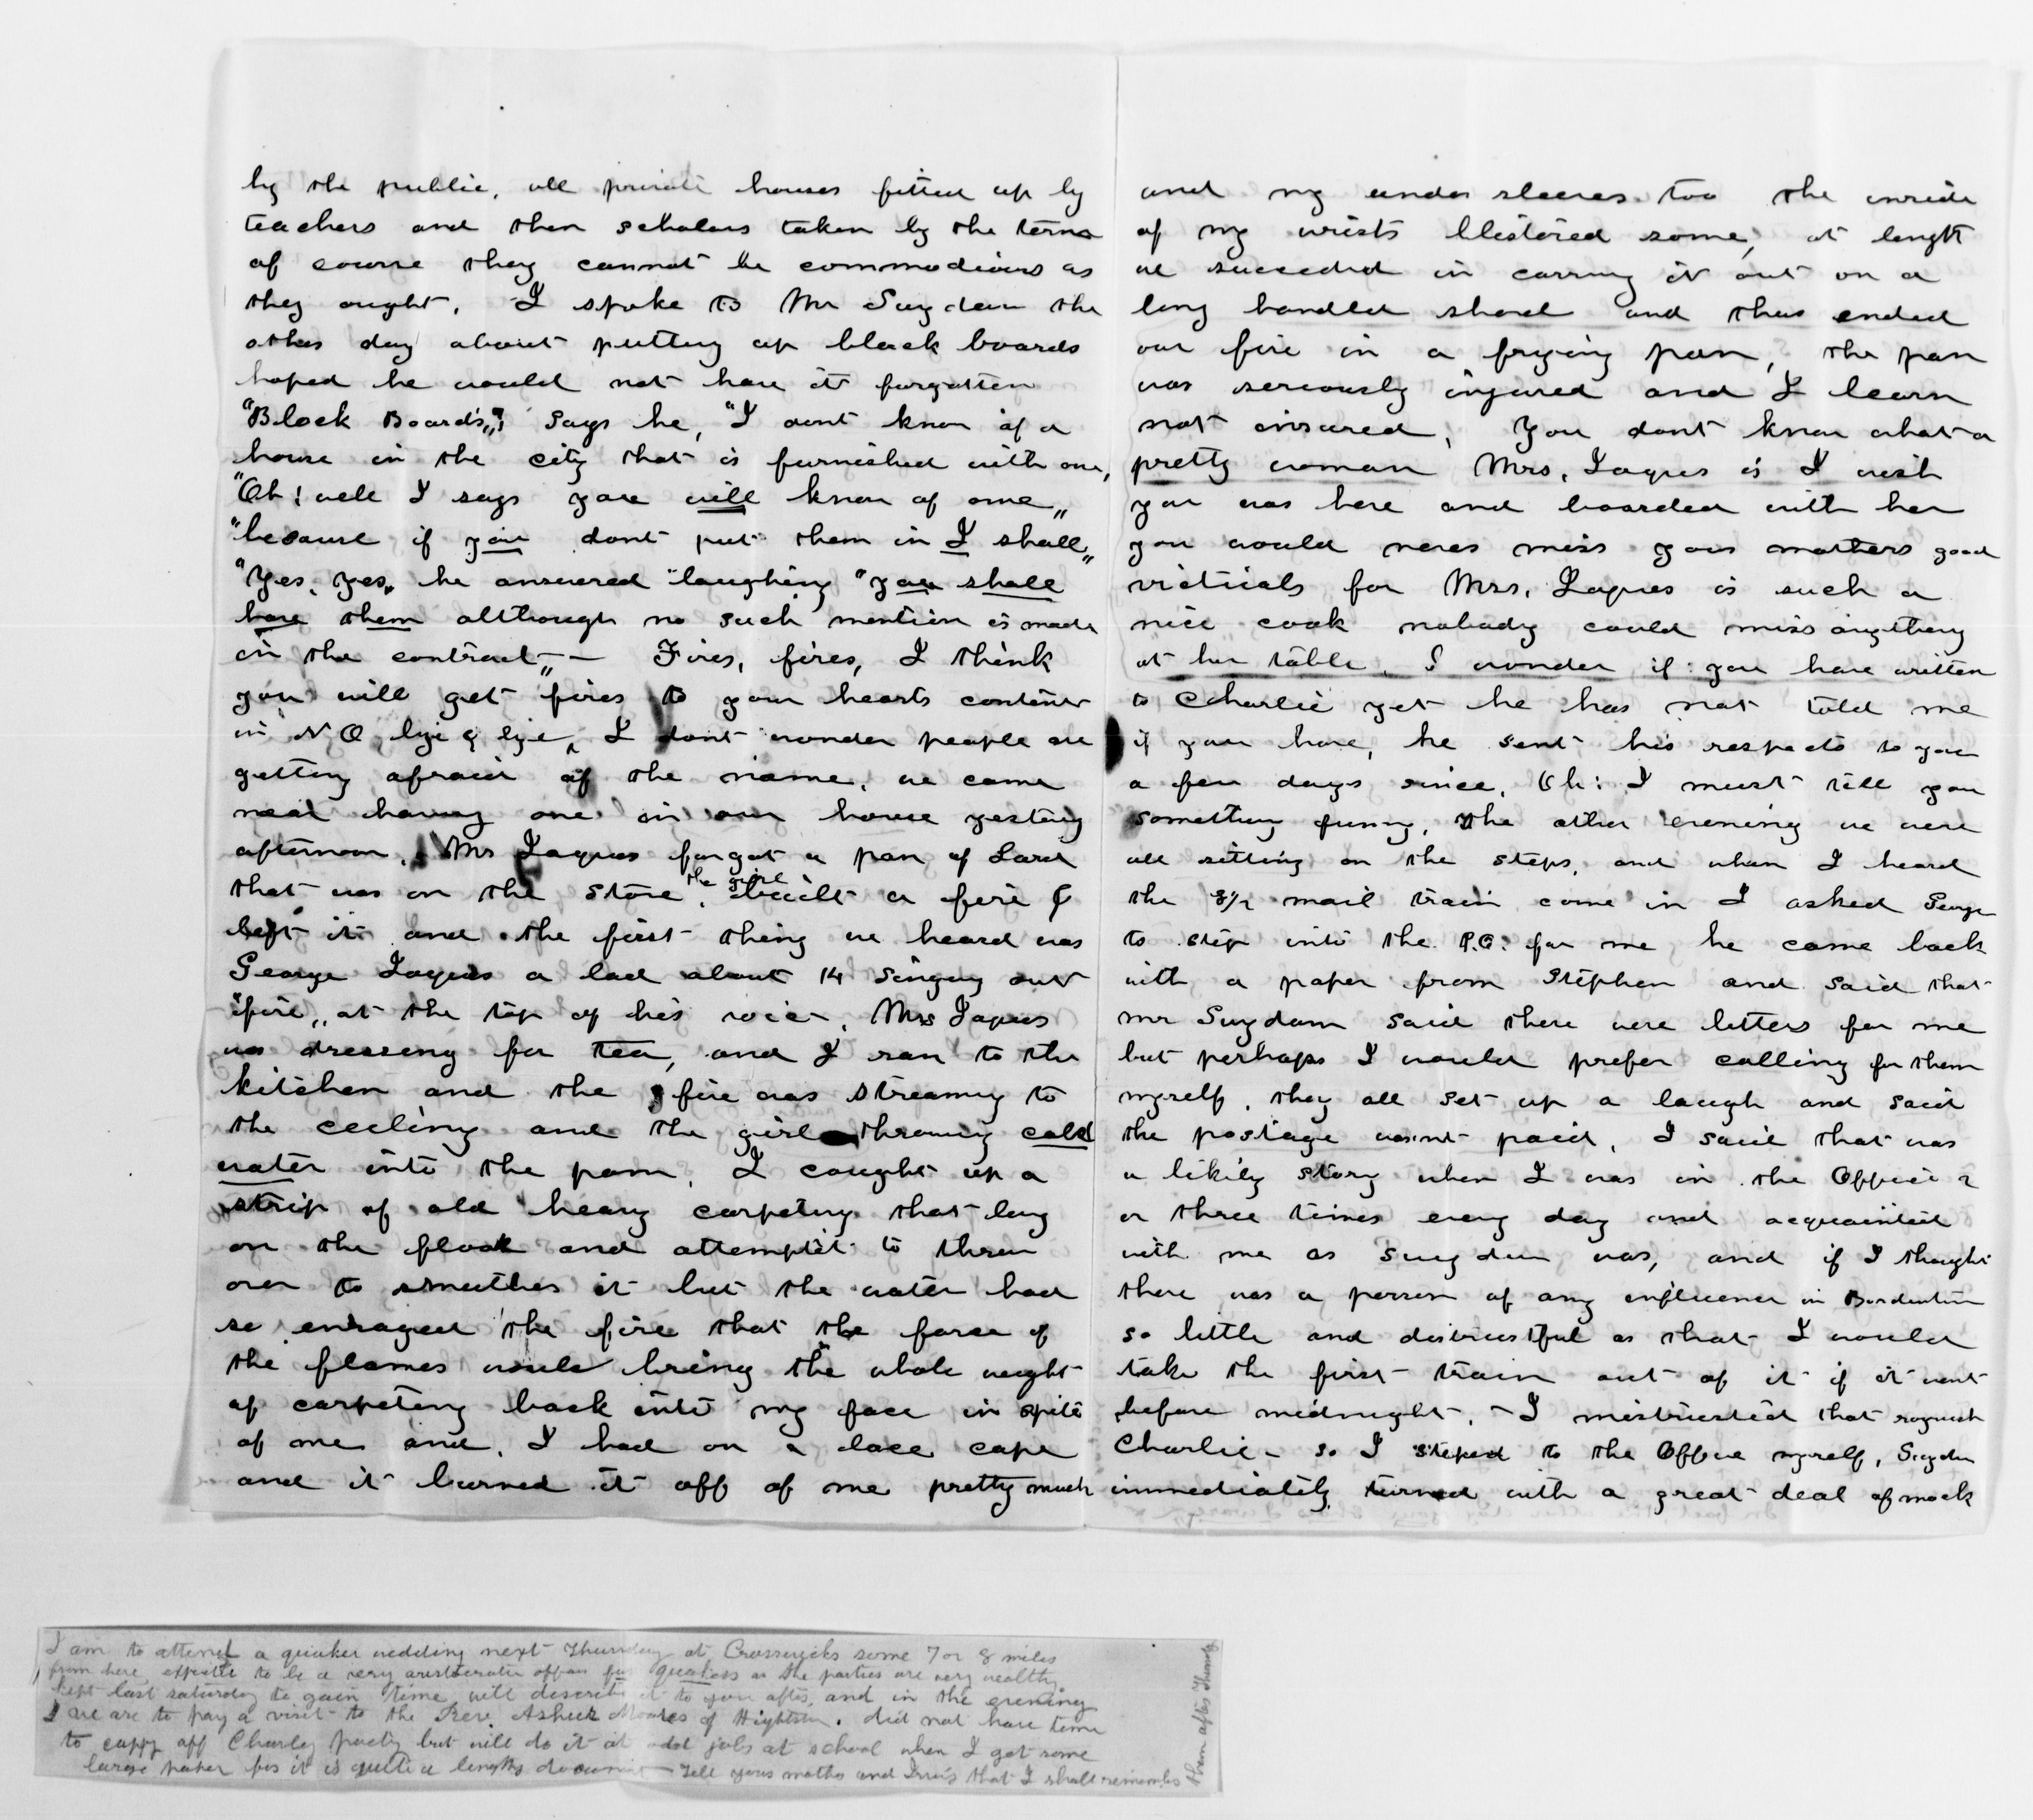 by the public, all private houses fitted up by
teachers and then scholars taken by the term
of course they cannot be commodious as
they ought. I spoke to Mr Suydam the
other day about putting up black boards
hoped he would not have it forgotten
"Black Boards"? says he, "I dont know of a
house in the city that is furnished with one,
"Oh! well I says you will know of one"
"because if you dont put them in I shall"
"Yes, yes" he answered laughing "you shall
have them although no such mention is made
in the contract" — Fires, fires, I think
you will get fires to your hearts content
in N O bye & bye, I dont wonder people are
getting afraid of the name, we came
near having one in our house yesterday
afternoon, Mrs Jaques forgot a pan of Lard
that was on the stove, the girl built a fire &
left it and the first thing we heard was
George Jaques a lad about 14 singing out
"fire" at the top of his voice, Mrs Jaques
was dressing for tea, and I ran to the
kitchen and the fire was streaming to
the ceeling and the girl throwing cold
water into the pan, I caught up a
strip of old heavy carpeting that lay
on the floor and attempted to throw
over to smother it but the water had
so enraged the fire that the force of
the flames would bring the whole weight
of carpeting back into my face in spite
of me and, I had on a lace cape
and it burned it off of me pretty much
and my under sleeves too the inside
of my wrists blistered some, at lengt
we succeeded in carring it out on a
long handled shovel and thus ended
our fire in a frying pan, the pan
was seriously injured and I learn
not insured, You dont know what a
pretty woman Mrs, Jaques is I wish
you was here and boarded with her
you would never miss your mothers good
victuals for Mrs, Jaques is such a
nice cook nobody could miss anything
at her table, I wonder if you have written
to Charlie yet he has not told me
if you have, he sent his respects to you
a few days since, Oh! I must tell you
something funny, the other evening we were
all sitting on the steps, and when I heard
the 8½ mail train come in I asked George
to step into the P.O. for me he came back
with a paper from Stephen and said that
mr Suydam said there were letters for me
but perhaps I would prefer calling for them
myself, they all set up a laugh and said
the postage wasnt paid, I said that was
a likely story when I was in the Office 2
or three times every day and acquainted
with me as Suydam was, and if I thought
there was a person of any influence in Bordentown
so little and distrustful as that I would
take the first train out of it if it went
before midnight, — I mistrusted that roguish
Charlie - so I steped to the Office myself, Suydam
immediately turned with a great deal of mock
I am to attend a quaker wedding next Thursday at Crosswicks some 7 or 8 miles
from here, expected to be a very aristocratic affair for quakers as the parties are very wealthy
kept last saturday to gain time, will describe it to you after, and in the evening
I we are to pay a visit to the Rev. Asher Moores of Hightstn. did not have time
to coppy off Charley poetry but will do it at odd jobs at school when I get some
large paper for it is quite a lengthy document — Tell your mother and that I shall remember
them after Thursday